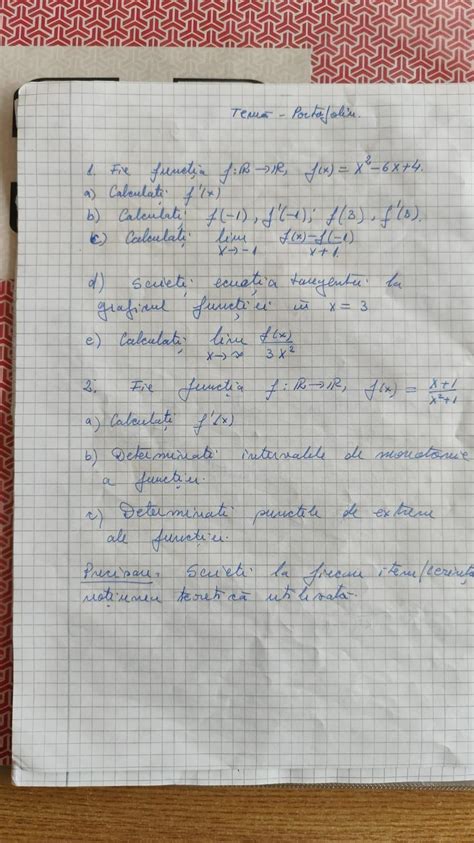 Temă - Portofoliu.
1. Fie funcția f:ℝ→ℝ, f(x) = x²-6x+4.
a) Calculați f'(x)
b) Calculați f(-1), f'(-1); f(3), f'(3).
c) Calculați lim x→-1 f(x)-f(-1) / x+1.
d) Scrieți ecuația tangentei la
graficul funcției în x = 3
e) Calculați lim x→∞ f(x) / 3x²
2. Fie funcția f:ℝ→ℝ, f(x) = x+1 / x²+1
a) Calculați f'(x)
b) Determinați intervalele de monotonie
a funcției.
c) Determinați punctele de extrem
ale funcției.
Precizare: Scrieți la fiecare item/cerință
noțiunea teoretică utilizată.